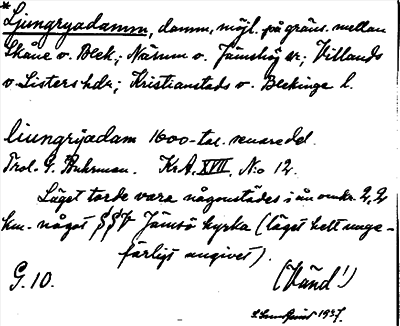 *Ljungryadamm, damm, möjl. på gräns. mellan
Skåne o. Blek.; Näsum o. Jämshög sr; Villands
o. Listers hdr; Kristianstads o. Blekinge l.
liungryadam 1600-tal. senare del.
Trol. G. Buhrman. KrA, XVII, No 12.
Läget torde vara någonstädes i ån omkr. 2,2
km. något Jämsö kyrka (läget helt unge-
färligt angivet).
G. 10.
(Vänd!)
1937.